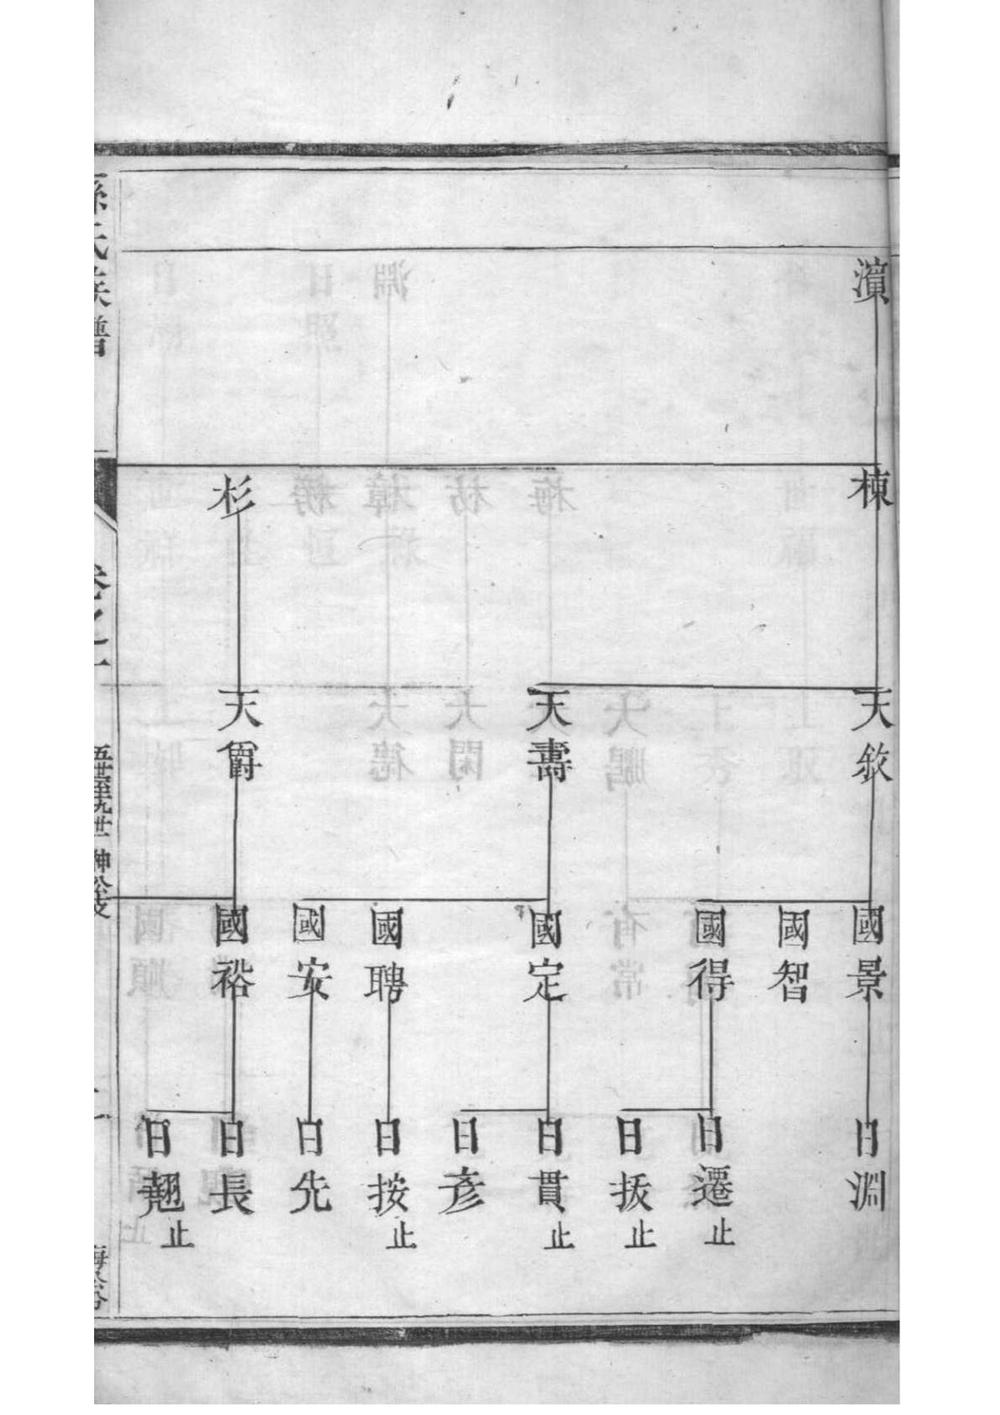 濵
棟
杉
天敘
天壽
天爵
國景
國智
國得
國定
國聘
國安
國裕
日淵
日遷止
日扳止
日貫止
日彥
日按止
日先
日長
日翹止
孫氏族譜
卷之一
五世至九世 神公支